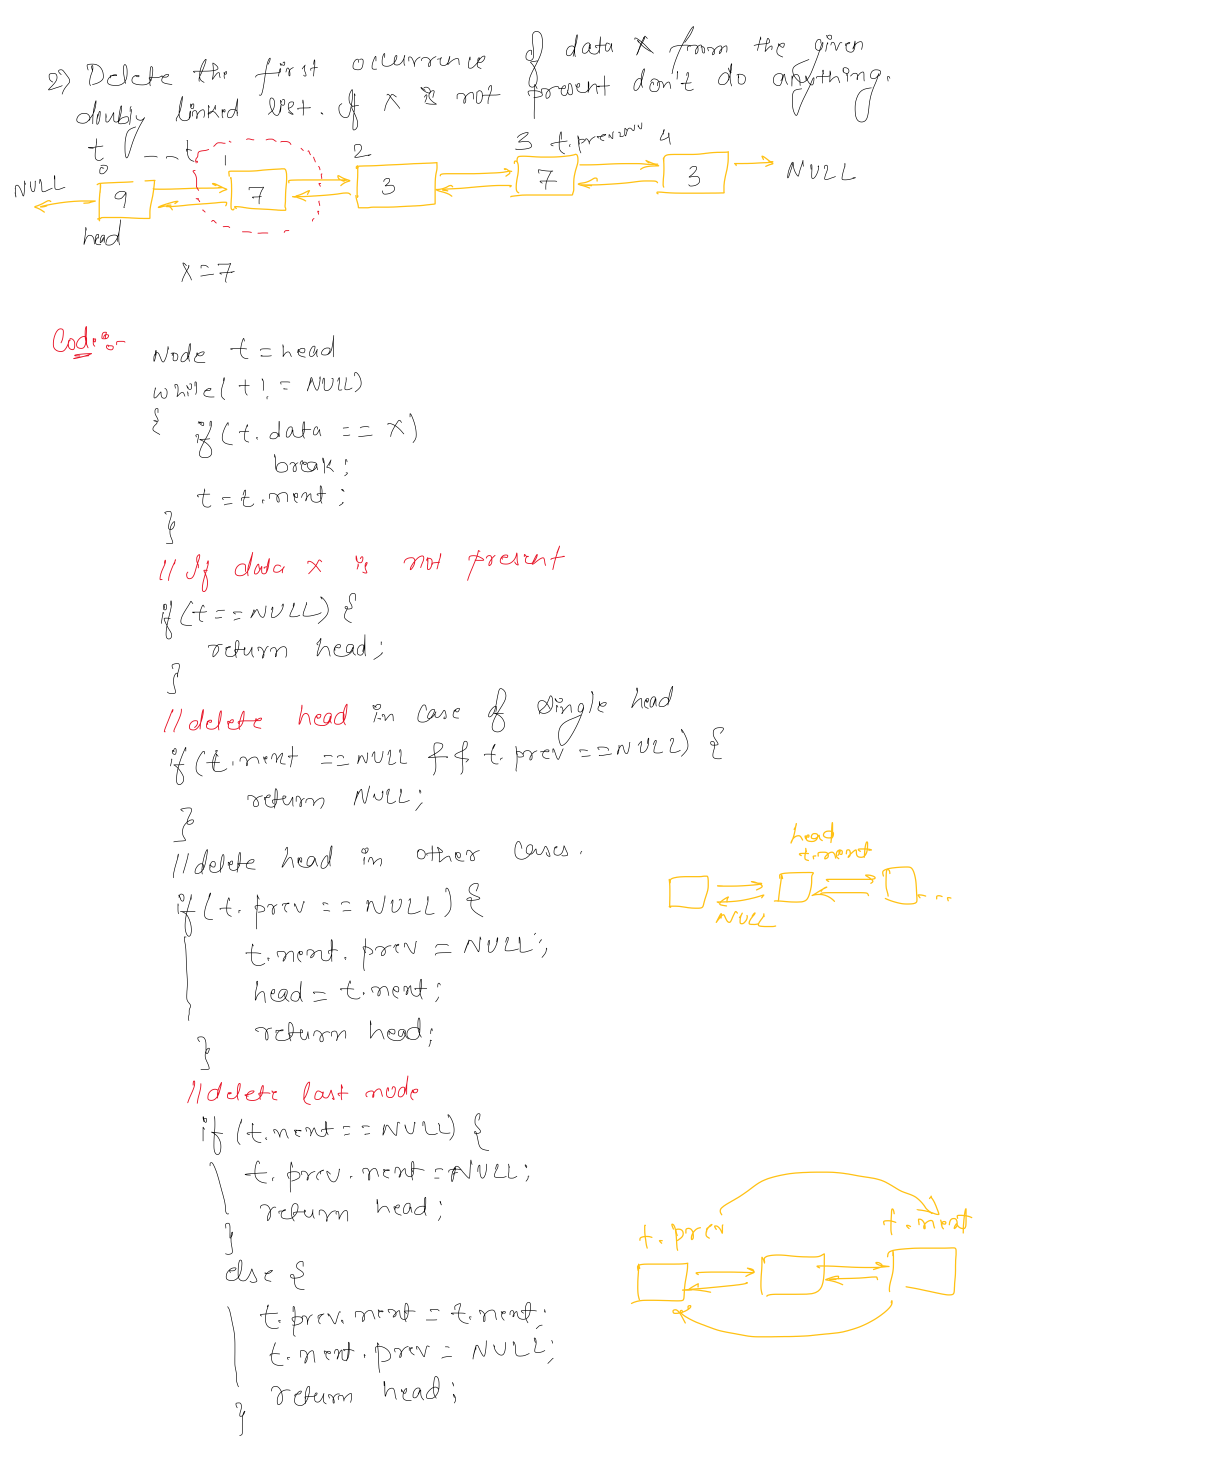 2) Delete the first occurrence of data x from the given
doubly linked list. If x is not present don't do anything.
t t
0 1 2 3 t.prev 4
NULL 9 7 3 7 3 NULL
head
x = 7
Code:-
Node t = head
while(t != NULL)
{ if(t.data == x)
break;
t = t.next;
}
// If data x is not present
if(t == NULL) {
return head;
}
// delete head in case of single head
if(t.next == NULL && t.prev == NULL) {
return NULL;
}
// delete head in other cases.
if(t.prev == NULL) {
t.next.prev = NULL;
head = t.next;
return head;
}
head
t.next
NULL
...
// delete last node
if(t.next == NULL) {
t.prev.next = NULL;
return head;
}
else {
t.prev.next = t.next;
t.next.prev = NULL;
return head;
}
t.prev t.next